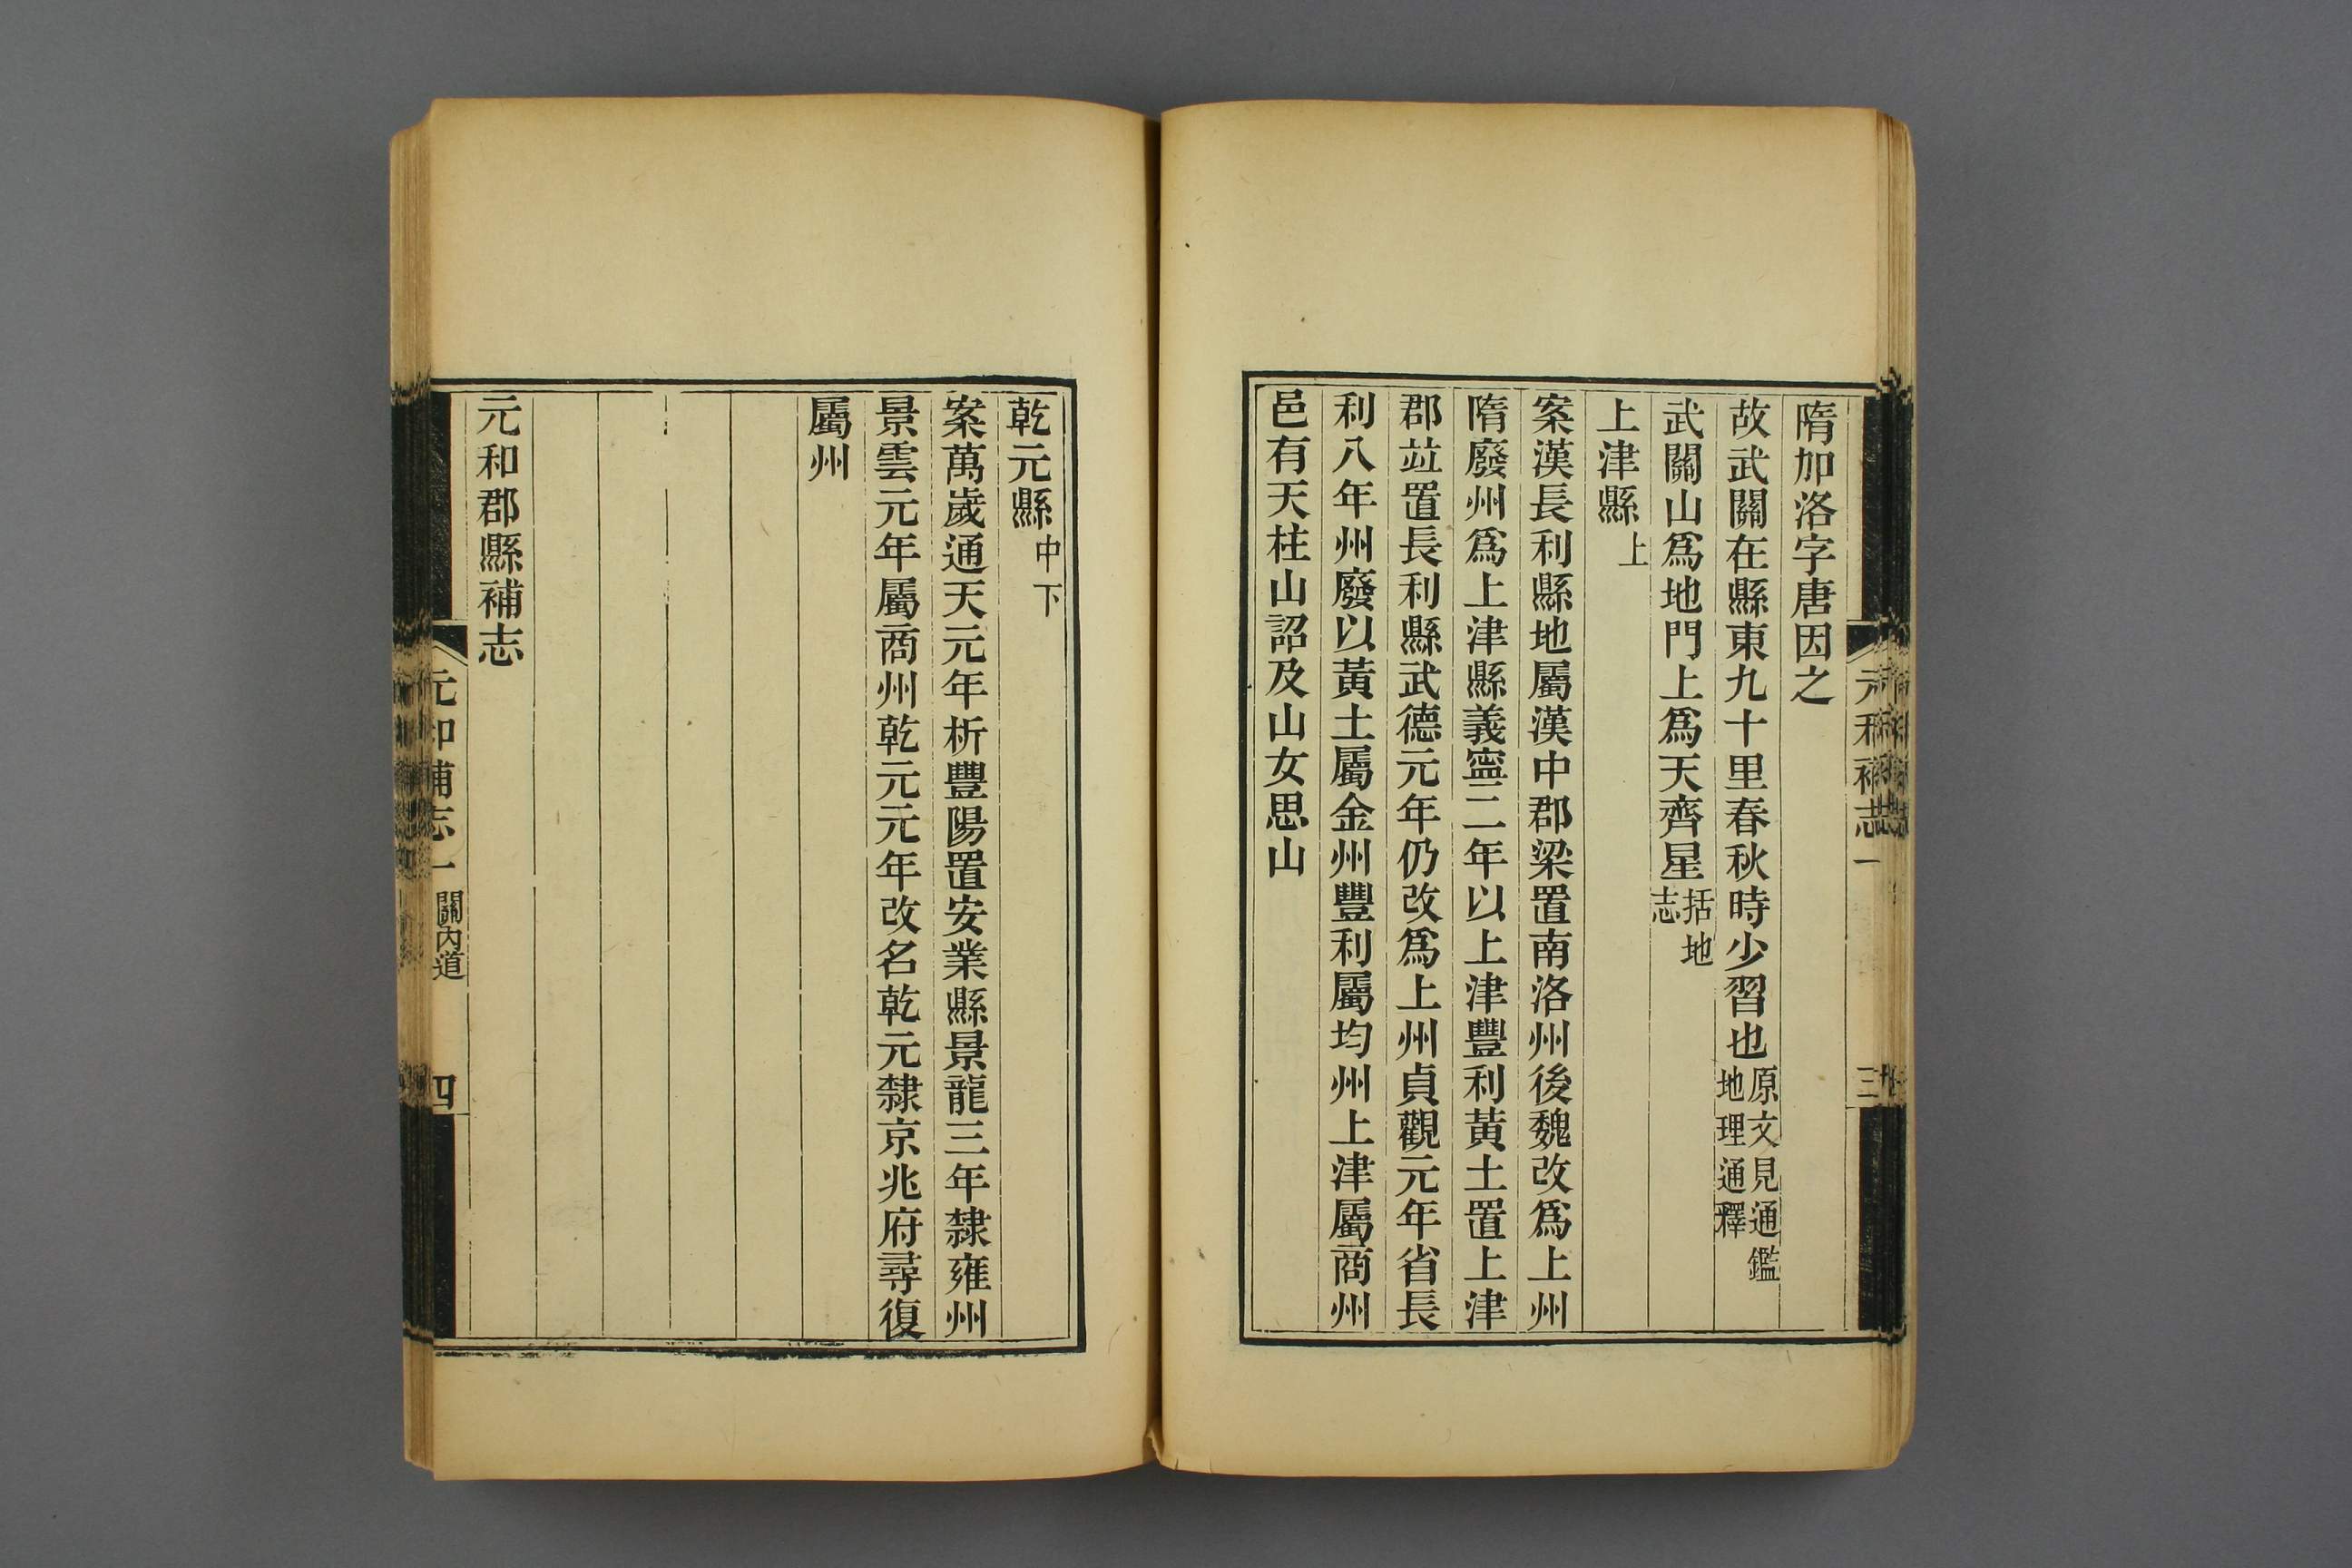 隋加洛字唐因之
故武關在縣東九十里春秋時少習也原文見通鑑地理通釋
武關山爲地門上爲天齊星括地志
上津縣上
案漢長利縣地屬漢中郡梁置南洛州後魏改爲上州
隋廢州爲上津縣義寧二年以上津豐利黃土置上津
郡竝置長利縣武德元年仍改爲上州貞觀元年省長
利八年州廢以黃土屬金州豐利屬均州上津屬商州
邑有天柱山詔及山女思山
乾元縣中下
案萬歲通天元年析豐陽置安業縣景龍三年隸雍州
景雲元年屬商州乾元元年改名乾元隸京兆府尋復
屬州
元和郡縣補志
元和補志一 關內道 四
元和補志一 三